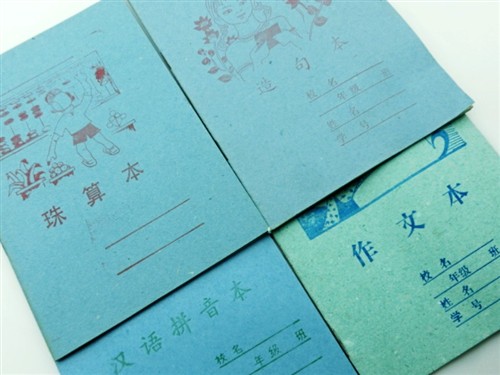 珠算本
造句本
校名
年级 班
姓名
学号
作文本
校名
年级 班
姓名
学号
汉语拼音本
校名
年级 班